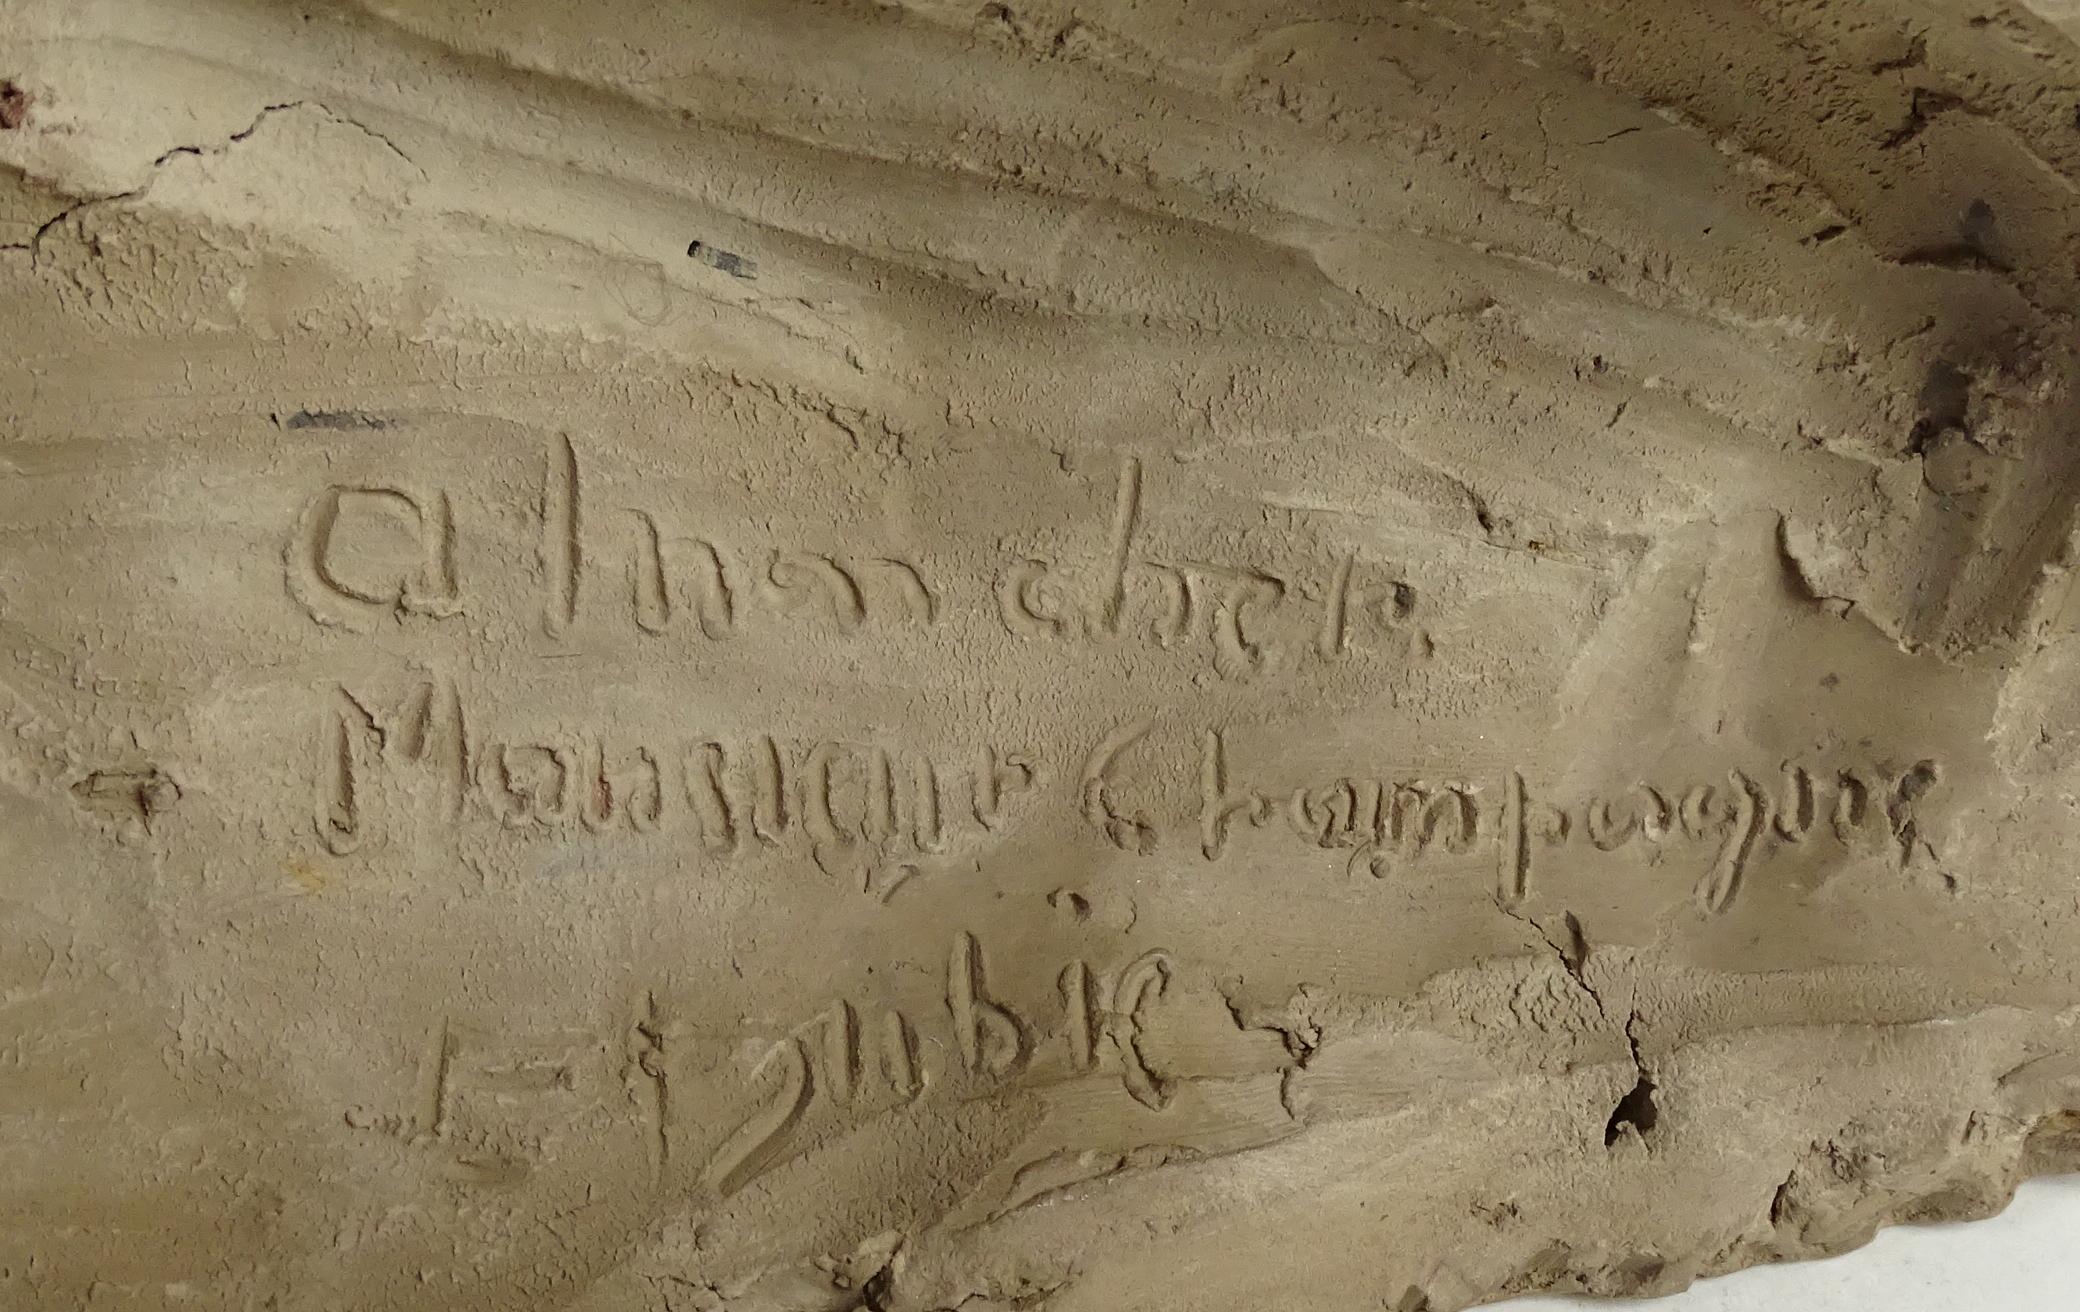 a mon cher
Monsieur Champagne
Jubié